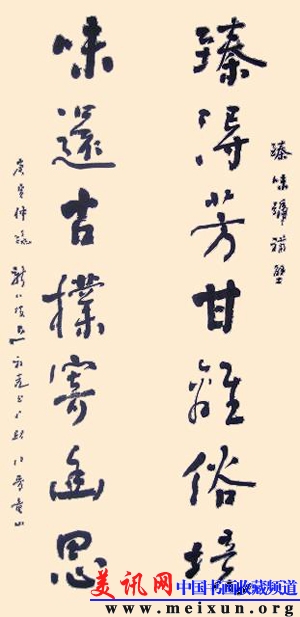 臻味號補壁
臻得芳甘離俗境
味還古樸寄幽思
庚寅仲
美讯网 中国书画收藏频道
www.meixun.org